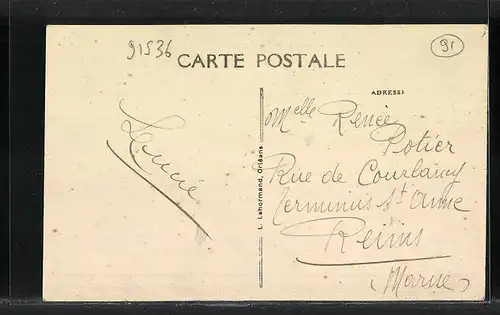 91536
91
CARTE POSTALE
ADRESSE
Melle Renée
Potier
Rue de Courlancy
Terminus St Anne
Reims
(Marne)
L. Lehormand, Orléans